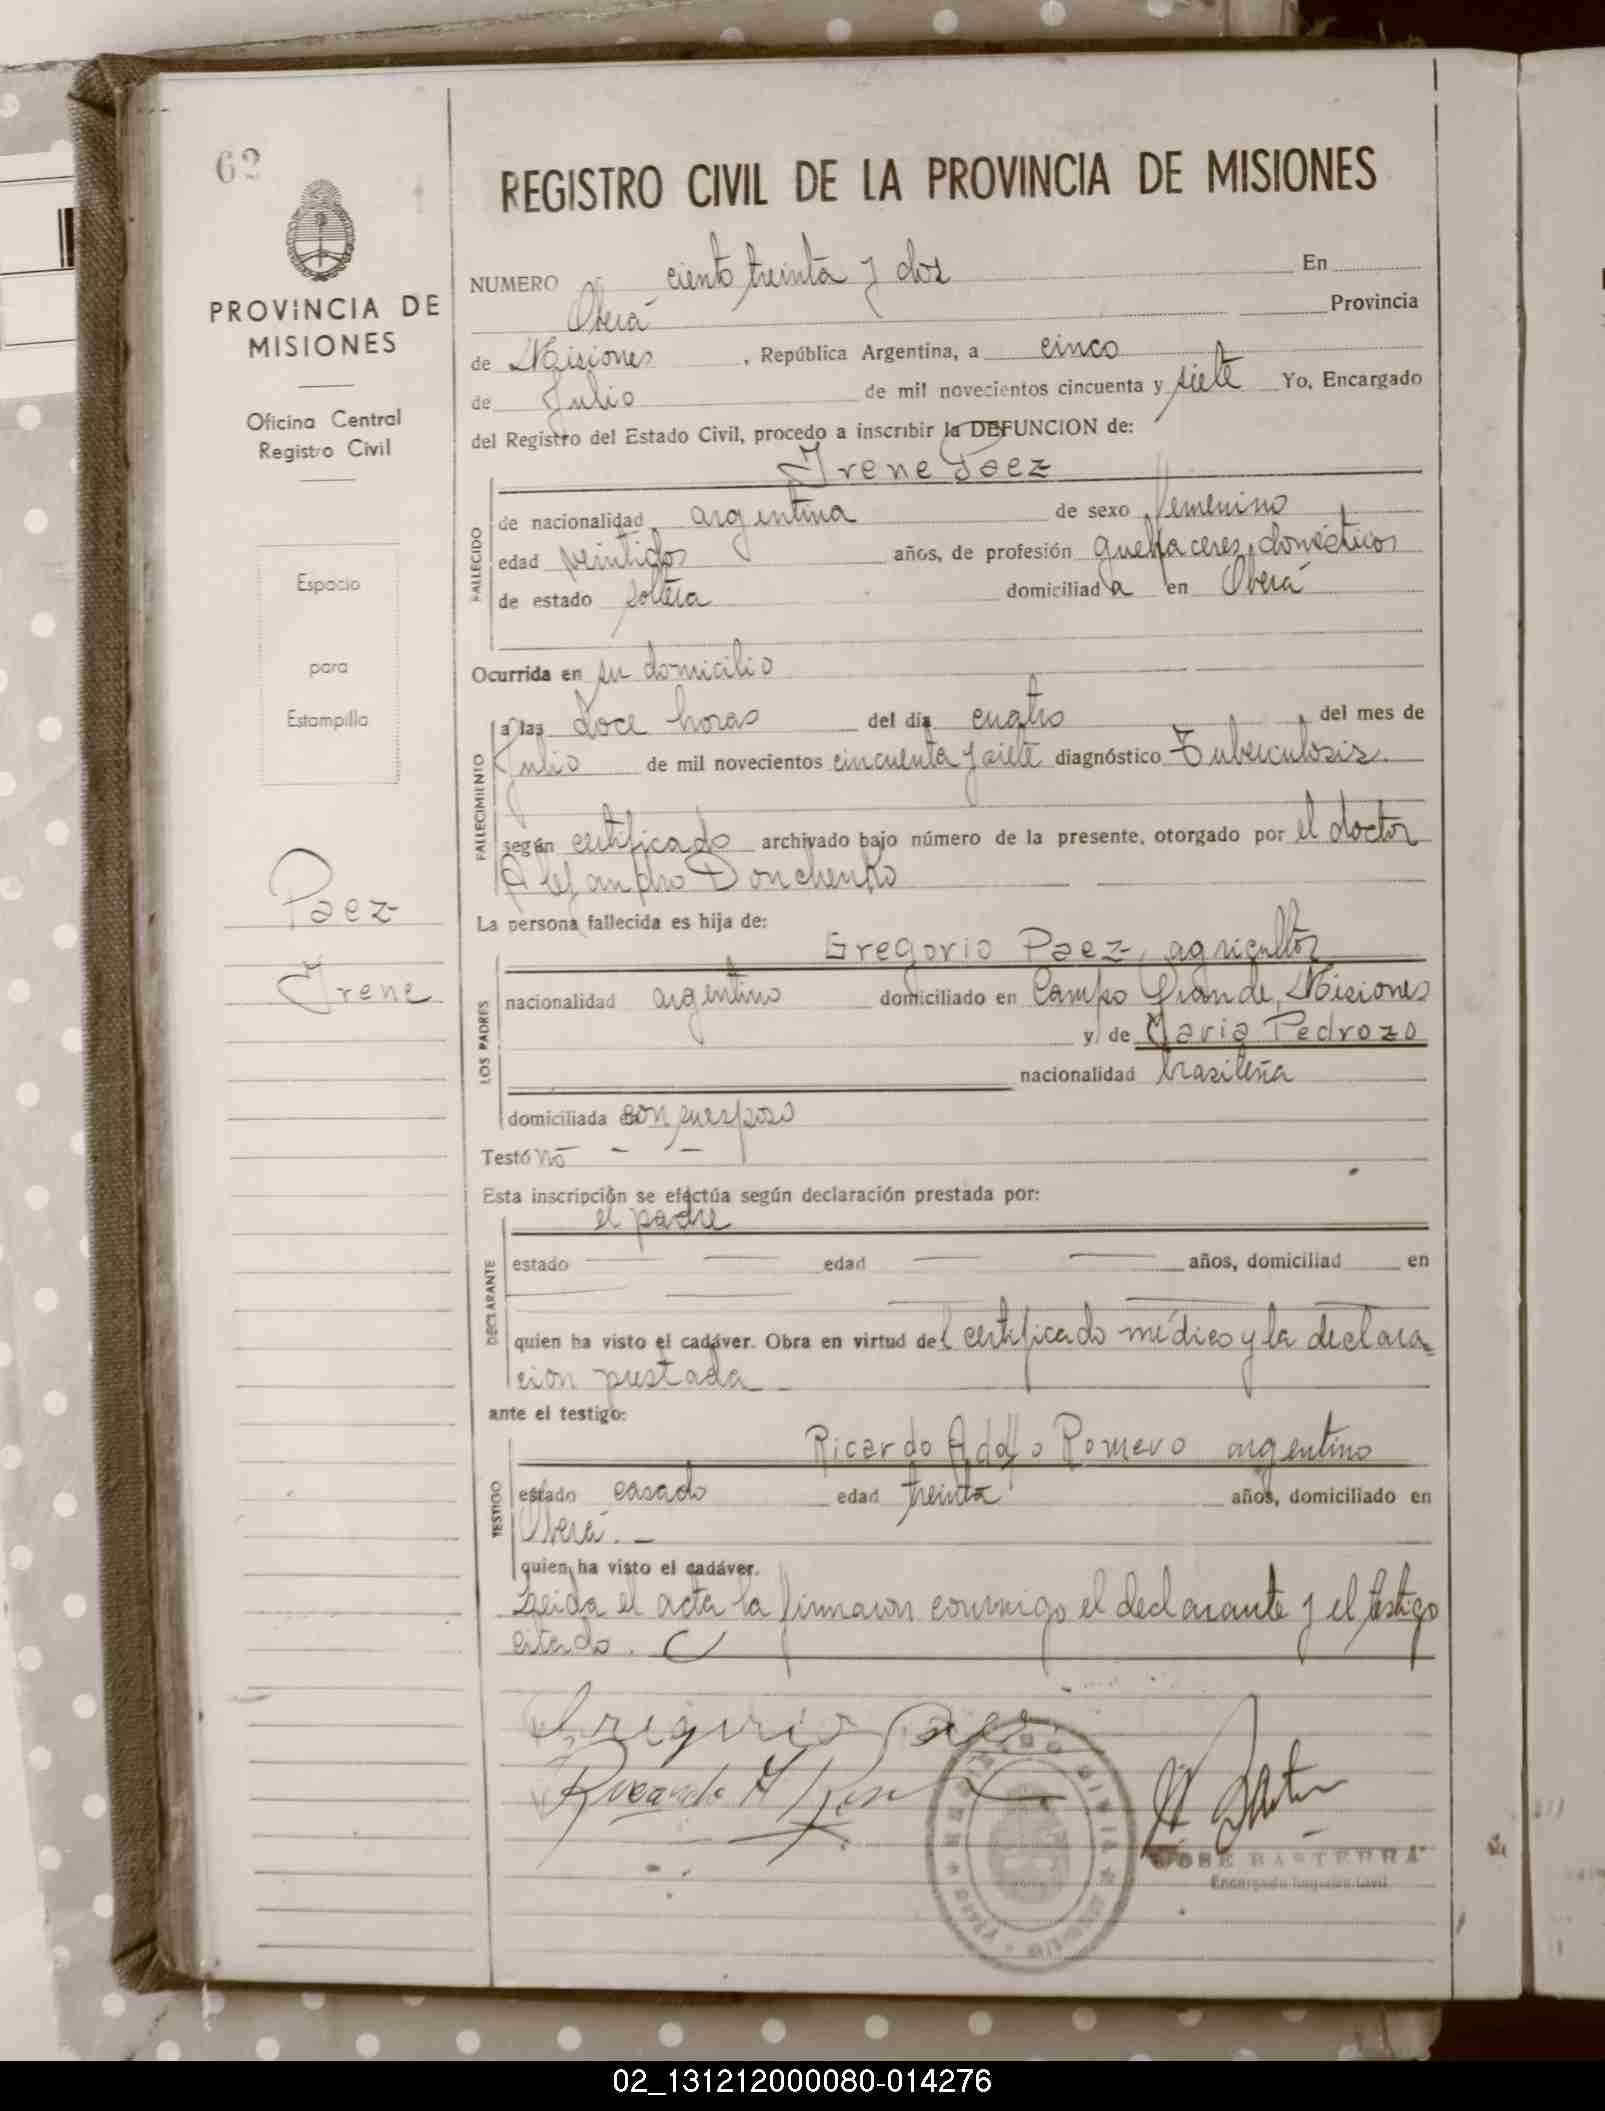 62
PROVINCIA DE
MISIONES
Oficina Central
Registro Civil
Espacio
para
Estampilla
Paez
Irene
REGISTRO CIVIL DE LA PROVINCIA DE MISIONES
NUMERO ciento treinta y dos En
Oberá Provincia
de Misiones , República Argentina, a cinco
de Julio de mil novecientos cincuenta y siete Yo, Encargado
del Registro del Estado Civil, procedo a inscribir la DEFUNCION de:
Irene Paez
FALLECIDO
de nacionalidad argentina de sexo femenino
edad veintidos años, de profesión quehaceres domésticos
de estado soltera domiciliad a en Oberá
Ocurrida en su domicilio
FALLECIMIENTO
a las doce horas del día cuatro del mes de
Julio de mil novecientos cincuenta y siete diagnóstico Tuberculosis.
según certificado archivado bajo número de la presente, otorgado por el doctor
Alejandro Donchenko
La persona fallecida es hija de:
Gregorio Paez, agricultor
LOS PADRES
nacionalidad argentino domiciliado en Campo Grande, Misiones
y de Maria Pedrozo
nacionalidad brasileña
domiciliada con su esposo
Testó no
Esta inscripción se efectúa según declaración prestada por:
el padre
DECLARANTE
estado edad años, domiciliad en
quien ha visto el cadáver. Obra en virtud del certificado médico y la declara
ción prestada
ante el testigo:
Ricardo Adolfo Romero argentino
TESTIGO
estado casado edad treinta años, domiciliado en
Oberá.
quien ha visto el cadáver.
Leida el acta la firmaron conmigo el declarante y el testigo
citado.
Gregorio Paez
JOSE BASTERRA
Encargado Registro Civil
REGISTRO CIVIL
02_131212000080-014276